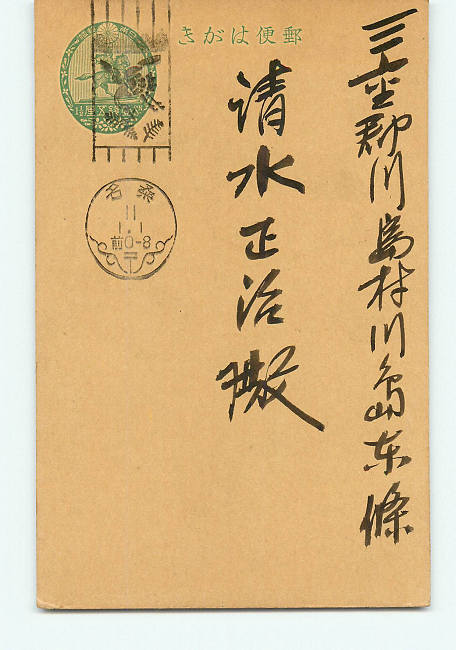 きがは便郵
三重郡川島村川島東條
清水正治殿
桑名
11
1.1
前0-8